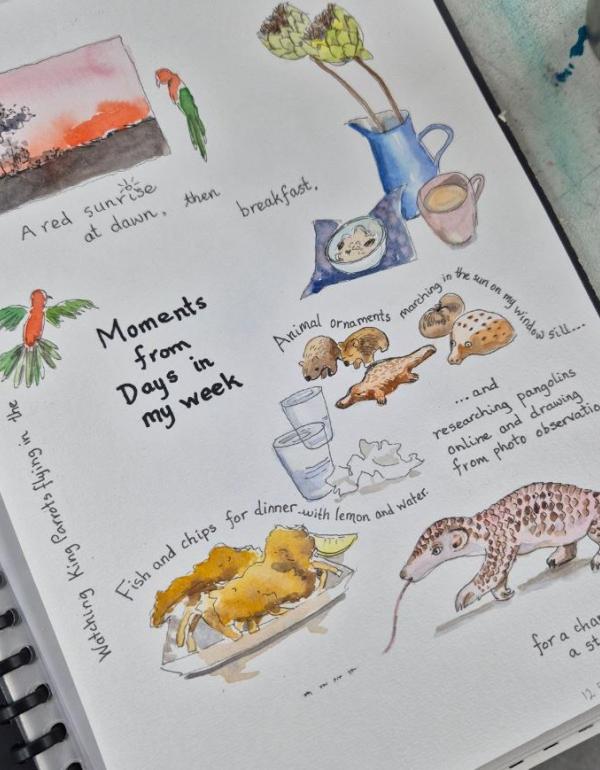 A red sunrise
at dawn, then
breakfast.
Moments
from
Days in
my week
Animal ornaments marching in the sun on my window sill...
...and
researching pangolins
online and drawing
from photo
Watching King Parrots flying in the
Fish and chips for dinner...with lemon and water.
for a
a
12